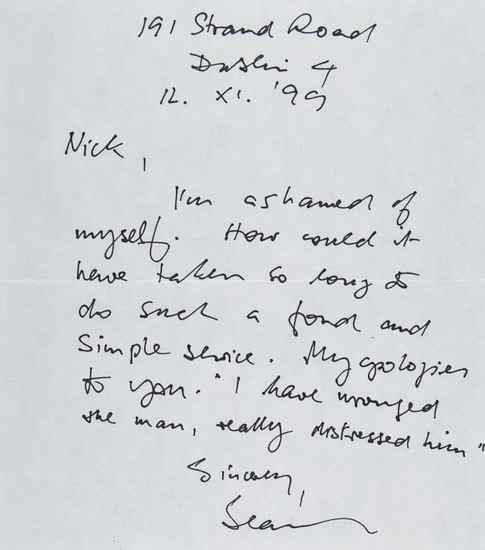 191 Strand Road
Dublin 4
12. XI. '99
Nick,
I'm ashamed of
myself. How could it
have taken so long to
do such a fond and
simple service. My apologies
to you. "I have wronged
the man, really distressed him"
Sincerely,
Seamus